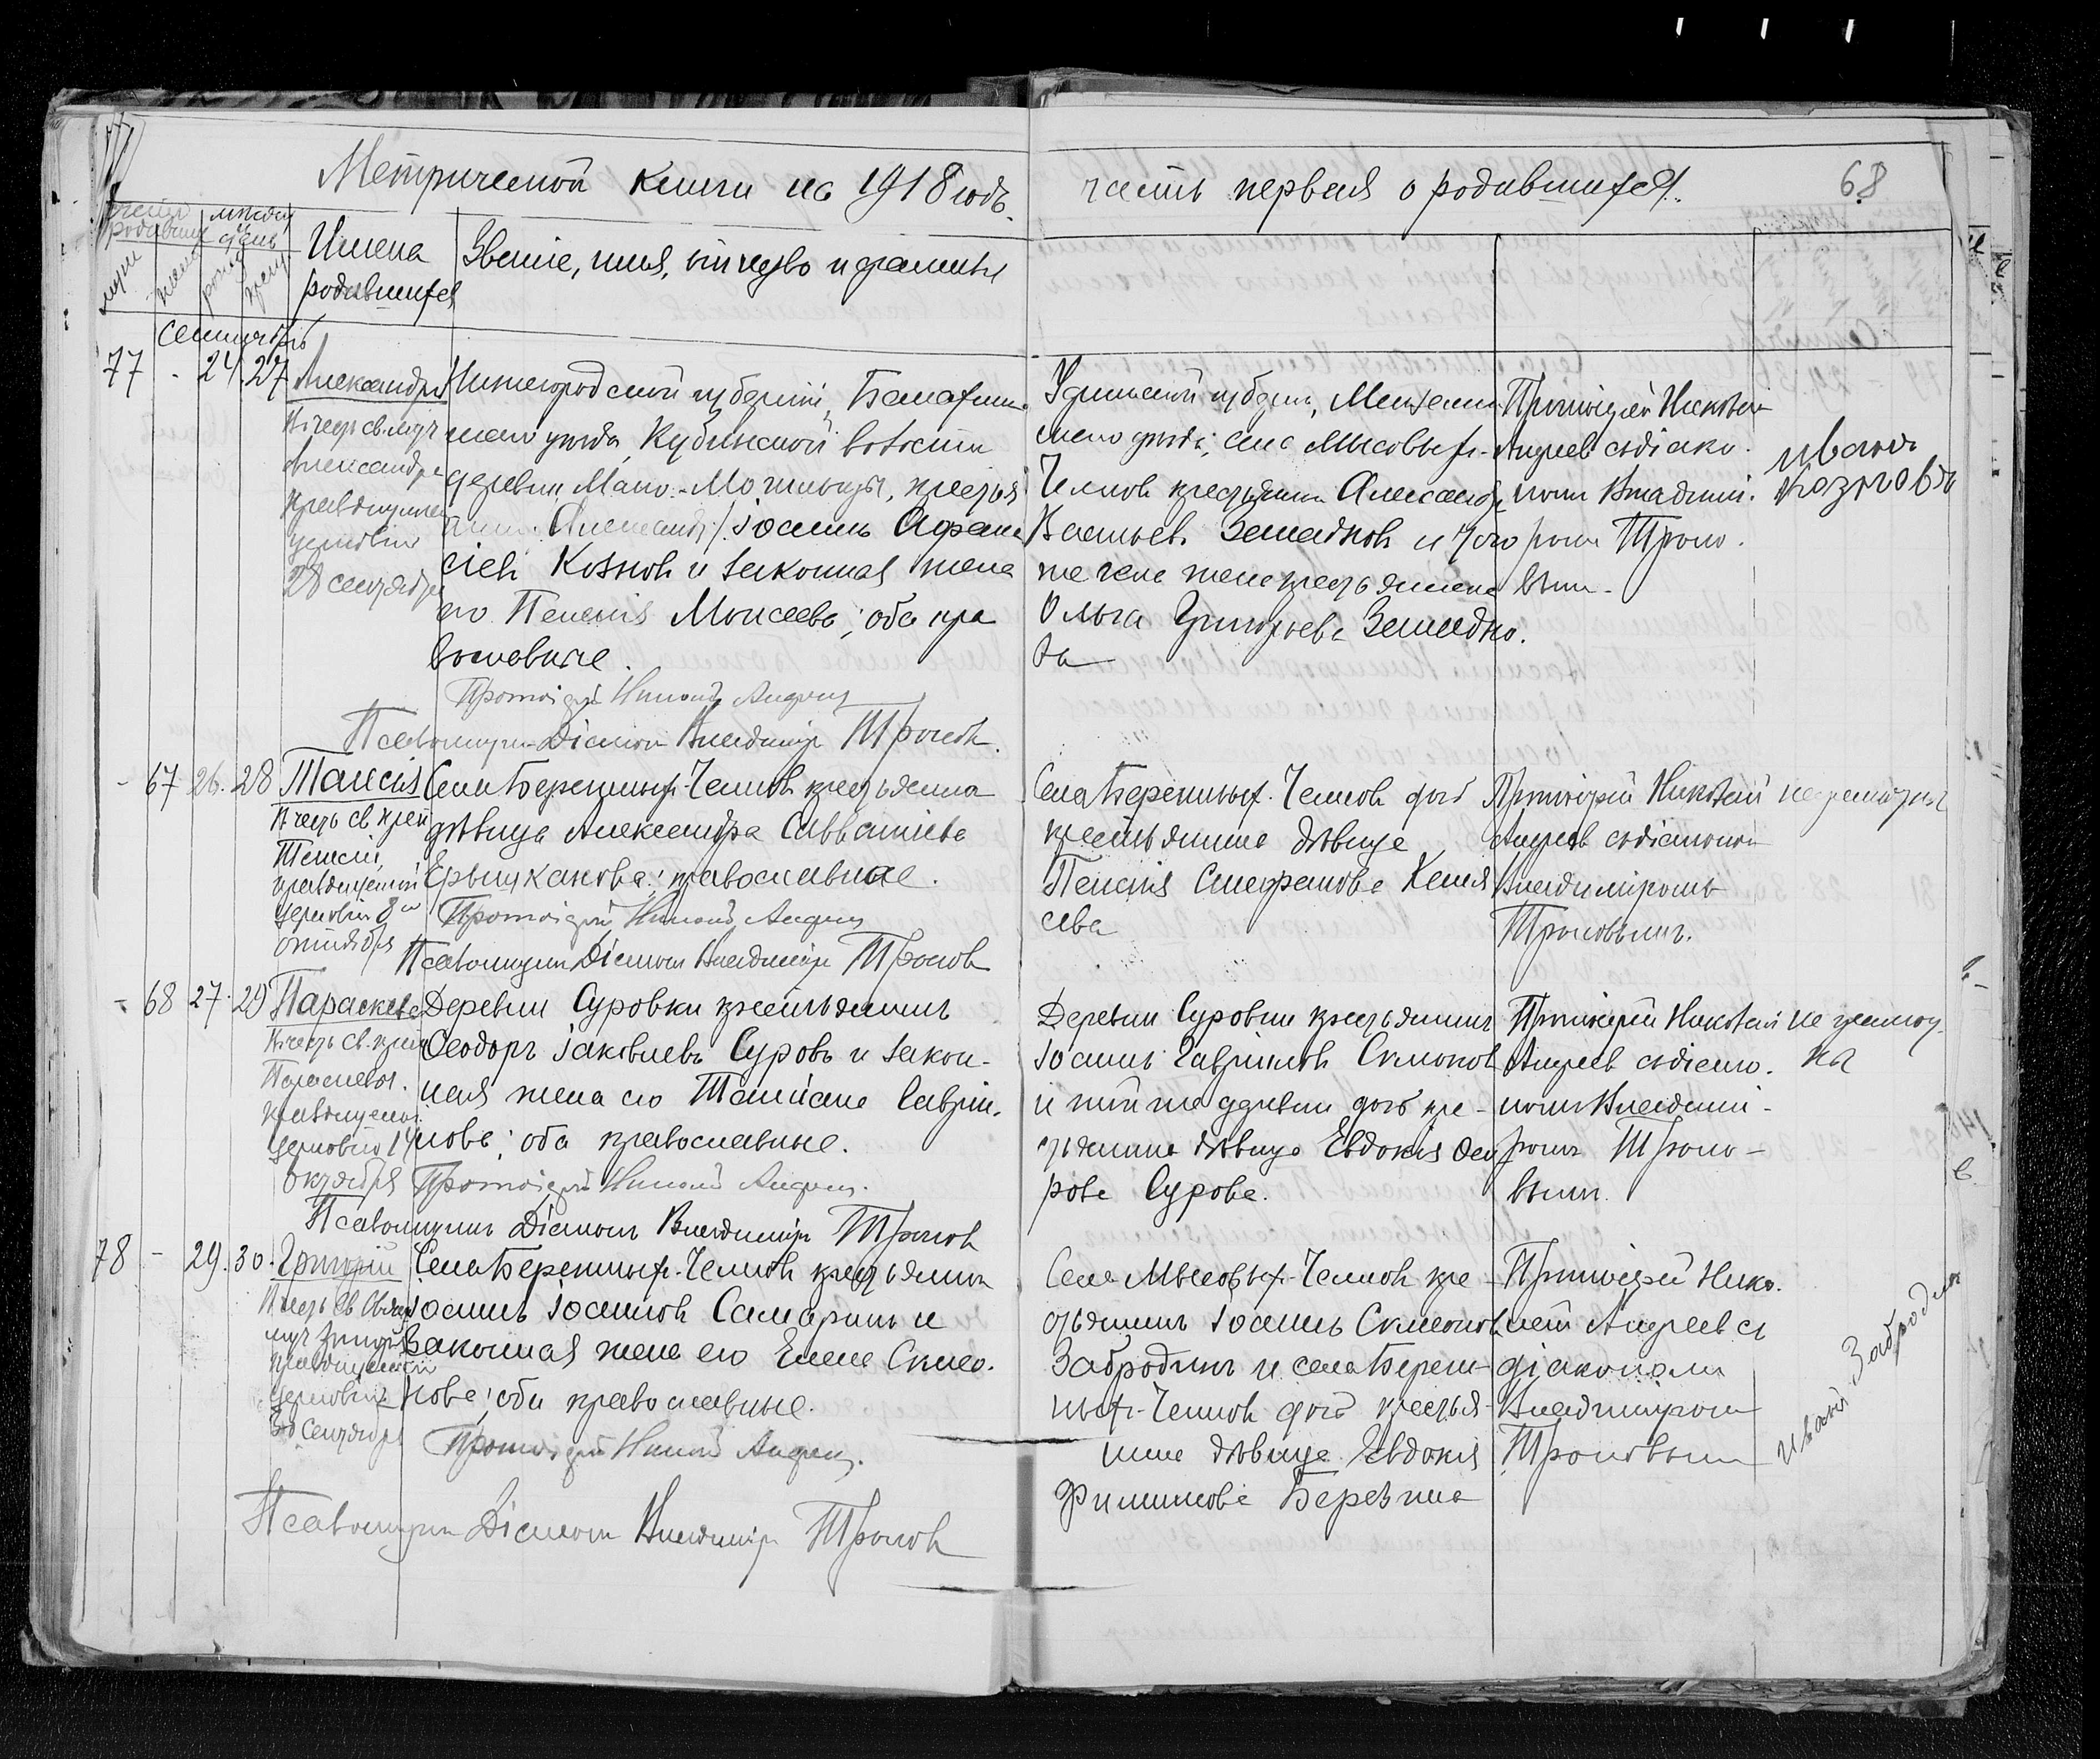 Метрической книги на 1918 годъ.
часть первая о родившихся.
68
число родившихся
месяц и день
муж
женс
рожд
крещ
Имена
родившихся
Званіе, имя, отчество и фамилія
Сентябрь
77 - 24. 27
Александръ
Въ честь св. муч
Александра
празднуемаго
церковію
28 сентября
Нижегородской губерніи, Балахнин
скаго уѣзда, Кубинской волости
деревни Мало-Могильцы, крестья
Іоаннъ Афана
сіевъ Козловъ и законная жена
его Пелагія Моисеева; оба пра
вославные.
Протоіерей Николай Андреев
Псаломщикъ Діаконъ Владиміръ Троновъ.
Уфимской губерніи, Мензелин
скаго уѣзда, села Мысовыхъ-
Челновъ крестьянинъ Александръ
Васильевъ Земсковъ и того
же села жена крестьянина
Ольга Григорьева Земско.
ва
Протоіерей Николай
Андреевъ съ діако.
номъ Владимі.
ромъ Троно.
вым.
Иванъ
Козловъ
- 67 26. 28
Таисія
В честь св. преп
Таисіи,
празднуемой
церковію 8го
октября
Села Бережныхъ-Челновъ крестьянка
дѣвица Александра Савватіева
православная.
Протоіерей Николай Андреев
Псаломщикъ Діаконъ Владиміръ Троновъ
Села Бережныхъ-Челновъ дочь
крестьянина дѣвица
Пелагія
Протоіерей Николай
Андреев съ діакономъ
Владиміромъ
Троновымъ.
неграмотна
- 68 27. 29
Параскева
Въ честь св.
Параскевы.
празднуемой
церковію 14
октября
Деревни Суровки крестьянинъ
Ѳеодоръ Іаковлевъ Суровъ и закон-
ная жена его Татіана Гаврии.
лова; оба православные.
Протоіерей Николай Андреев.
Псаломщикъ Діаконъ Владиміръ Троновъ
Деревни Суровки крестьянинъ
Іоаннъ Гавріиловъ
и той же деревни дочь кре-
стьянина дѣвица Евдокія Ѳео
рова Сурова.
Протоіерей Николай
Андреев съ діако.
номъ Владимі-
ромъ Троно-
вымъ.
не грамот
на
78 - 29. 30.
Григорій
Въ честь св.
муч Григорія
празднуемаго
церковію
30 Сентября
Села Бережныхъ-Челновъ крестьянинъ
Іоаннъ Іоанновъ Самаринъ и
законная жена его Елена Симео.
нова; оба православные.
Протоіерей Николай Андреев.
Псаломщикъ Діаконъ Владиміръ Троновъ
Села Мысовыхъ-Челновъ кре-
стьянинъ Іоаннъ Симеоновъ
Забродинъ и села Береж-
ныхъ-Челновъ дочь крестья-
нина дѣвица Евдокія
Филиппова
Протоіерей Нико.
лай Андреевъ съ
діакономъ
Владиміромъ
Троновым
Иванъ Забродинъ